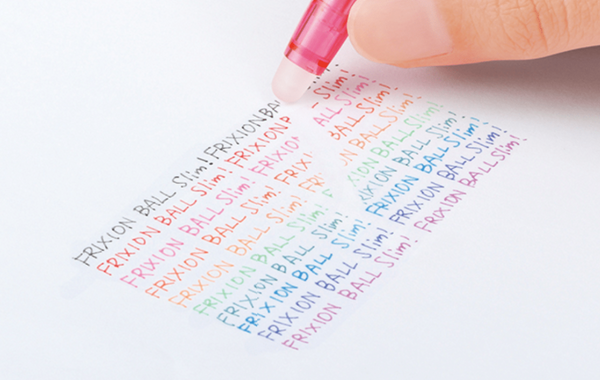 FRIXION BALL Slim! FRIXION BA
FRIXION BALL Slim! FRIXION Slim!
FRIXION BALL Slim! FRIXIO ALL Slim!
FRIXION BALL Slim! FRIXI BALL Slim!
FRIXION BALL Slim! FRI N BALL Slim!
FRIXION BALL Slim! F XION BALL Slim!
FRIXION BALL Slim! FRIXION BALL Slim!
FRIXION BALL Slim! FRIXION BALL Slim!
FRIXION BALL Slim! FRIXION BALL Slim!
FRIXION BALL Slim! FRIXION BALL Slim!